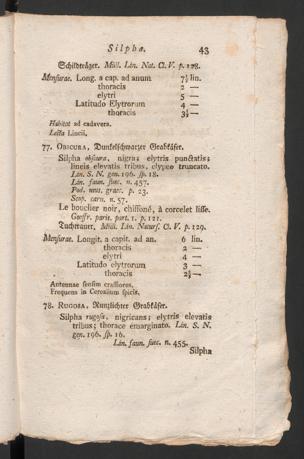 Silphæ. 43
Schildträger. Müll. Lin. Nat. Cl. V. p. 128.
Mensurae. Long. a cap. ad anum 7½ lin.
thoracis 2 —
elytri 5 —
Latitudo Elytrorum 4 —
thoracis 3½ —
Habitat ad cadavera.
Lecta Lincii.
77. OBSCURA, Dunkelschwarzer Grabkäfer.
Silpha obscura, nigra; elytris punctatis;
lineis elevatis tribus, clypeo truncato.
Lin. S. N. gen. 196. sp. 18.
Lin. faun. suec. n. 457.
Pod. mus. graec. p. 23.
Scop. carn. n. 57.
Le bouclier noir, chiffoné, à corcelet lisse.
Geoffr. paris. part. 1. p. 121.
Tuchtrauer, Müll. Lin. Naturs. Cl. V. p. 129.
Mensurae. Longit. a capit. ad an. 6 lin.
thoracis 2 —
elytri 4 —
Latitudo elytrorum 3 —
thoracis 2½ —
Antennae sensim crassiores.
Frequens in Cerealium spicis.
78. RUGOSA, Runzlichter Grabkäfer.
Silpha rugosa, nigricans; elytris elevatis
tribus; thorace emarginato. Lin. S. N.
gen. 196. sp. 16.
Lin. faun. suec. n. 455.
Silpha